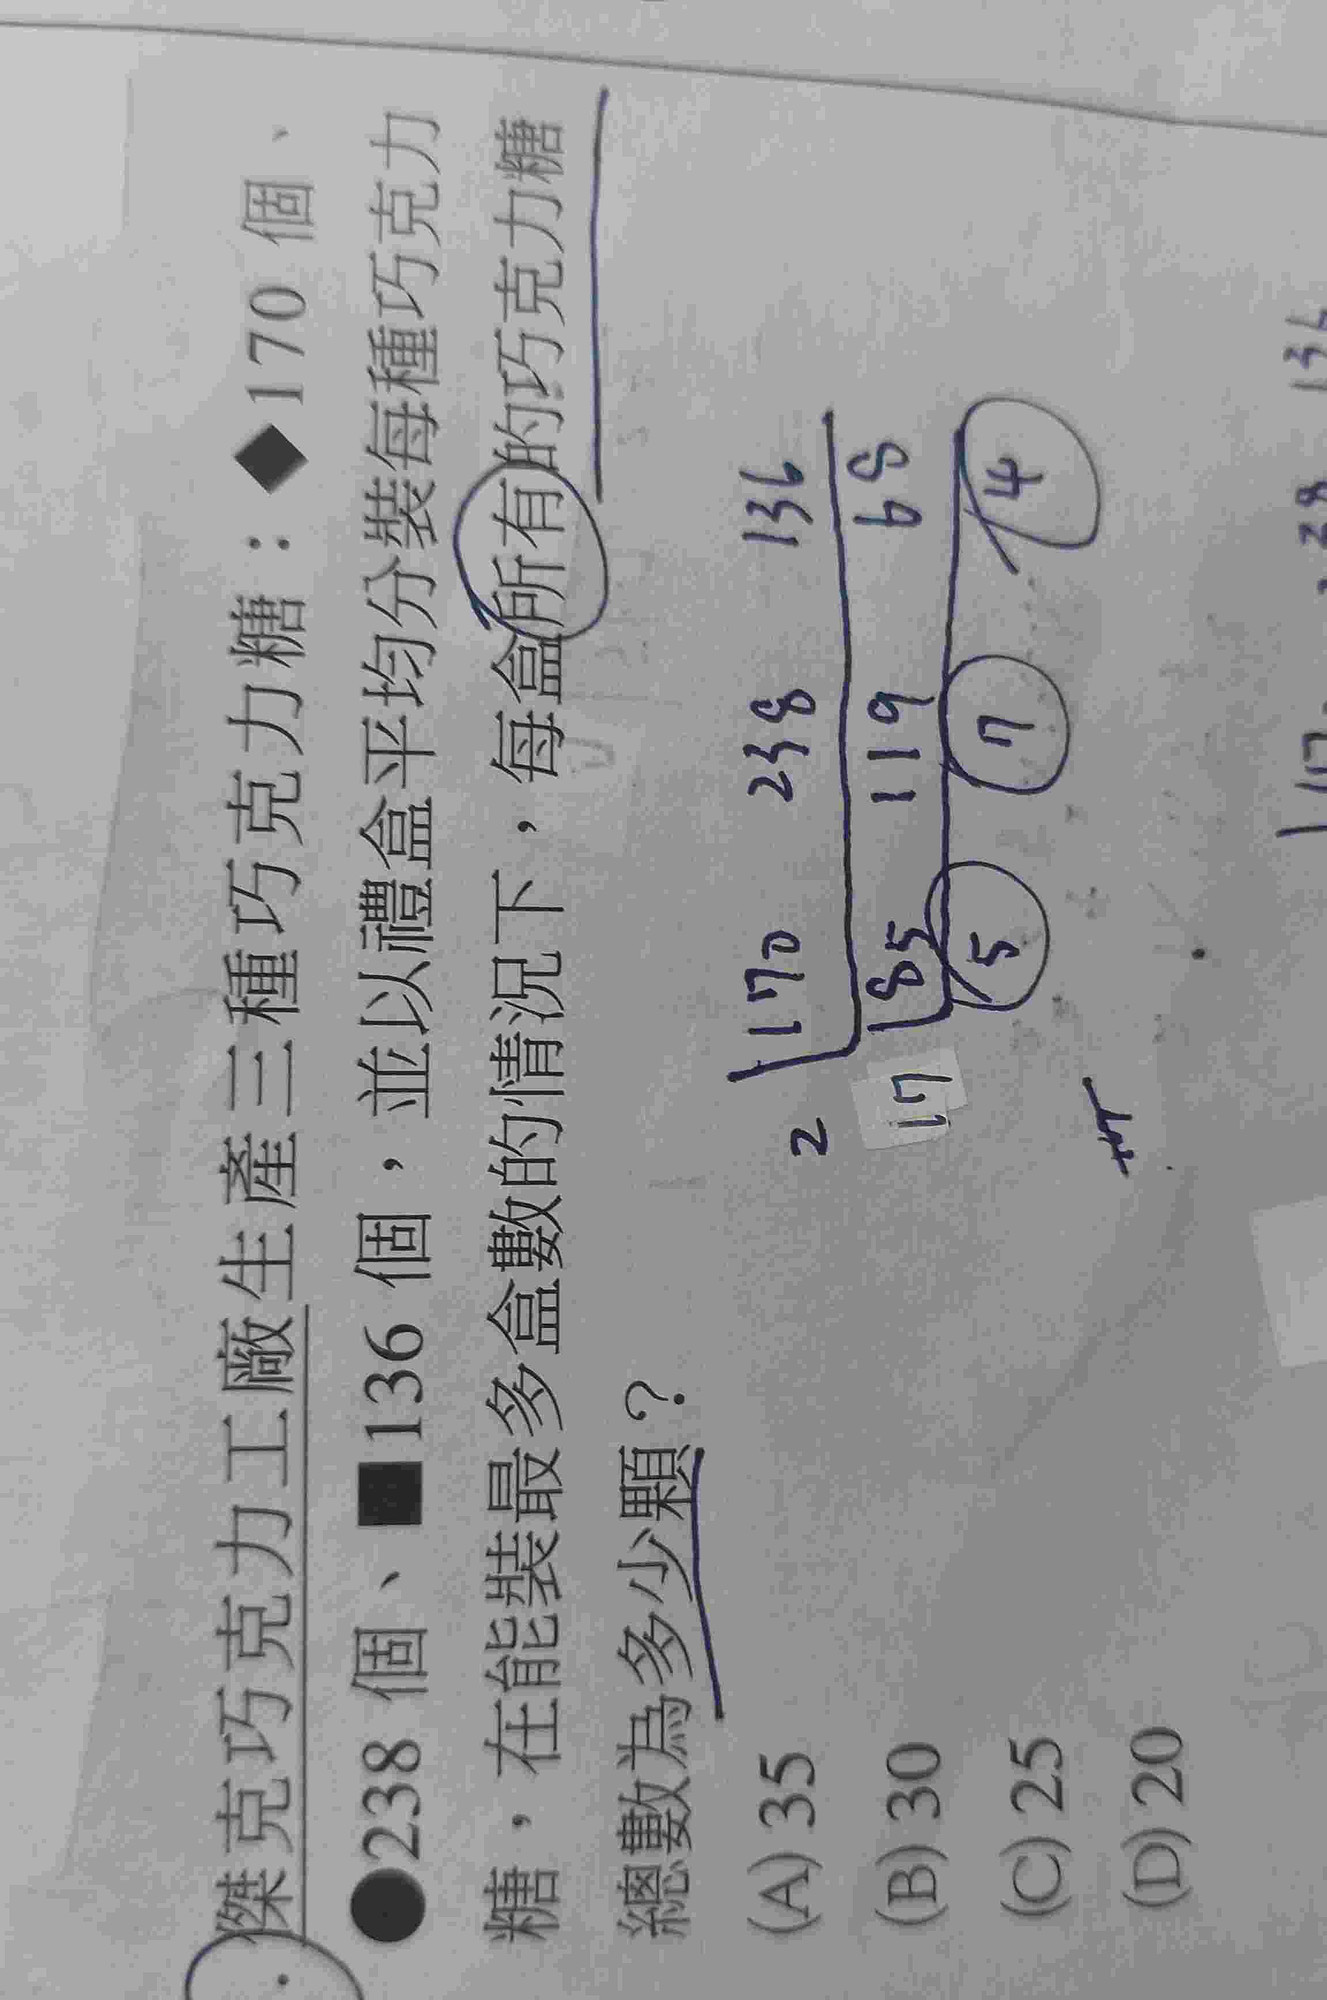 傑克巧克力工廠生產三種巧克力糖：◆170 個、
●238 個、■136 個，並以禮盒平均分裝每種巧克力
糖，在能裝最多盒數的情況下，每盒所有的巧克力糖
總數為多少顆？
(A) 35
(B) 30
(C) 25
(D) 20
2 170 238 136
17 85 119 68
5 7 4